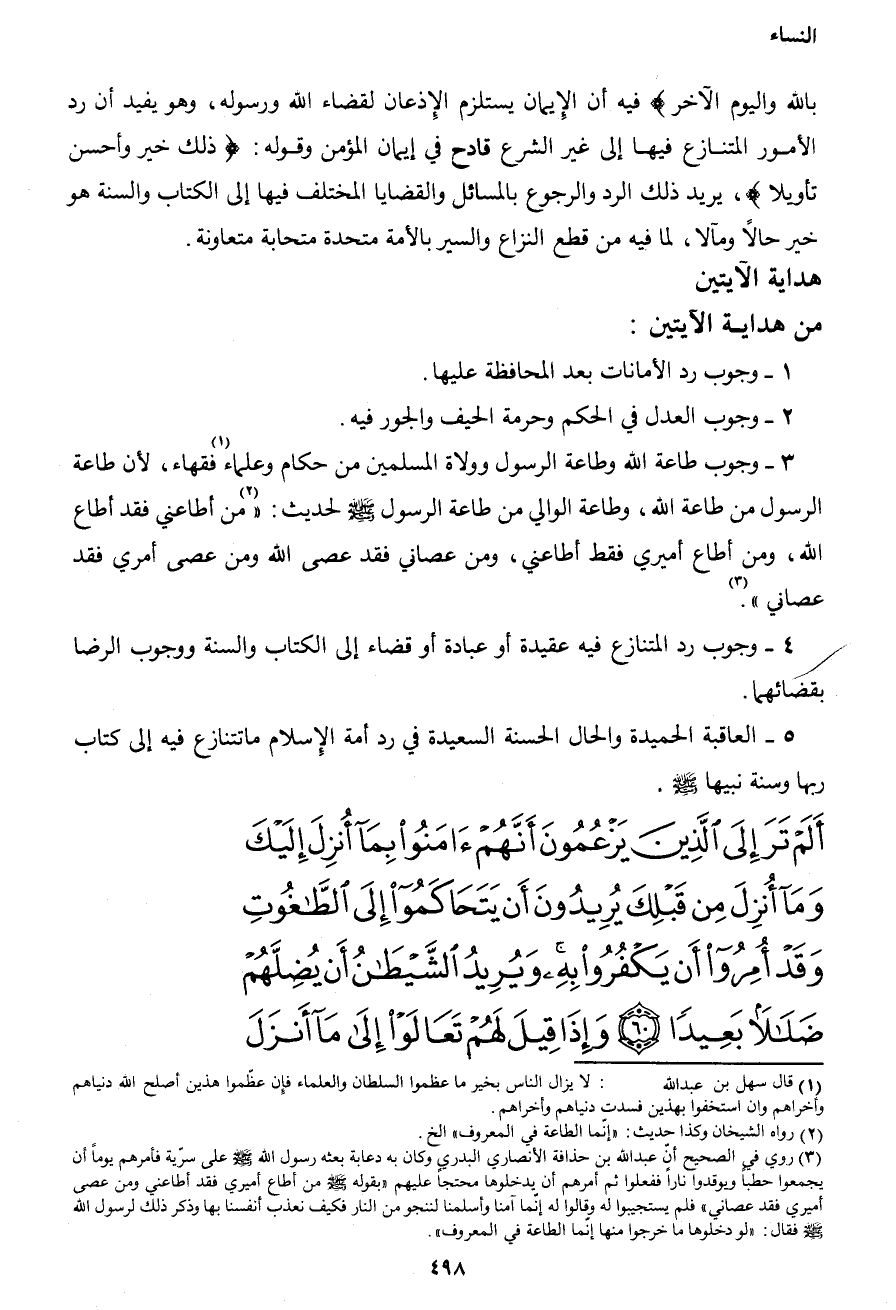 النساء
بالله واليوم الآخر ﴾ فيه أن الإيمان يستلزم الإذعان لقضاء الله ورسوله، وهو يفيد أن رد
الأمور المتنازع فيها إلى غير الشرع قادح في إيمان المؤمن وقوله: ﴿ ذلك خير وأحسن
تأويلا ﴾، يريد ذلك الرد والرجوع بالمسائل والقضايا المختلف فيها إلى الكتاب والسنة هو
خير حالًا ومآلا، لما فيه من قطع النزاع والسير بالأمة متحدة متحابة متعاونة.
هداية الآيتين
من هداية الآيتين :
١ - وجوب رد الأمانات بعد المحافظة عليها.
٢ - وجوب العدل في الحكم وحرمة الحيف والجور فيه.
٣ - وجوب طاعة الله وطاعة الرسول وولاة المسلمين من حكام وعلماء(١) فقهاء، لأن طاعة
الرسول من طاعة الله، وطاعة الوالي من طاعة الرسول ﷺ لحديث: «(٢)من أطاعني فقد أطاع
الله، ومن أطاع أميري فقط أطاعني، ومن عصاني فقد عصى الله ومن عصى أمري فقد
عصاني».(٣)
٤ - وجوب رد المتنازع فيه عقيدة أو عبادة أو قضاء إلى الكتاب والسنة ووجوب الرضا
بقضائهما.
٥ - العاقبة الحميدة والحال الحسنة السعيدة في رد أمة الإسلام ماتتنازع فيه إلى كتاب
ربها وسنة نبيها ﷺ .
أَلَمۡ تَرَ إِلَى ٱلَّذِينَ يَزۡعُمُونَ أَنَّهُمۡ ءَامَنُواْ بِمَآ أُنزِلَ إِلَيۡكَ
وَمَآ أُنزِلَ مِن قَبۡلِكَ يُرِيدُونَ أَن يَتَحَاكَمُوٓاْ إِلَى ٱلطَّٰغُوتِ
وَقَدۡ أُمِرُوٓاْ أَن يَكۡفُرُواْ بِهِۦۖ وَيُرِيدُ ٱلشَّيۡطَٰنُ أَن يُضِلَّهُمۡ
ضَلَٰلَۢا بَعِيدٗا ٦٠ وَإِذَا قِيلَ لَهُمۡ تَعَالَوۡاْ إِلَىٰ مَآ أَنزَلَ
(١) قال سهل بن عبدالله : لا يزال الناس بخير ما عظموا السلطان والعلماء فإن عظّموا هذين أصلح الله دنياهم
وأخراهم وان استخفوا بهذين فسدت دنياهم وأخراهم.
(٢) رواه الشيخان وكذا حديث: «إنّما الطاعة في المعروف» الخ.
(٣) روي في الصحيح أنّ عبدالله بن حذافة الأنصاري البدري وكان به دعابة بعثه رسول الله ﷺ على سرّية فأمرهم يوماً أن
يجمعوا حطباً ويوقدوا ناراً ففعلوا ثم أمرهم أن يدخلوها محتجاً عليهم «بقوله ﷺ من أطاع أميري فقد أطاعني ومن عصى
أميري فقد عصاني» فلم يستجيبوا له وقالوا له إنّما آمنا وأسلمنا لننجو من النار فكيف نعذب أنفسنا بها وذكر ذلك لرسول الله
ﷺ فقال: «لو دخلوها ما خرجوا منها إنّما الطاعة في المعروف».
٤٩٨